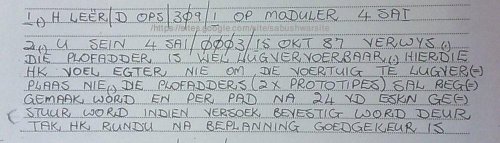 1(.) H LEËR/D OPS/309/1 OP MODULER 4 SAI
2(.) U SEIN 4 SAI/0003/15 OKT 87 VERWYS(.)
DIE PLOFADDER IS WEL LUGVERVOERBAAR(.) HIERDIE
HK VOEL EGTER NIE OM DIE VOERTUIG TE LUGVER(=)
PLAAS NIE(.) DIE PLOFADDERS (2 X PROTOTIPES) SAL REG(=)
GEMAAK WORD EN PER PAD NA 24 VD ESKN GE(=)
STUUR WORD INDIEN VERSOEK BEVESTIG WORD DEUR
TAK HK RUNDU NA BEPLANNING GOEDGEKEUR IS